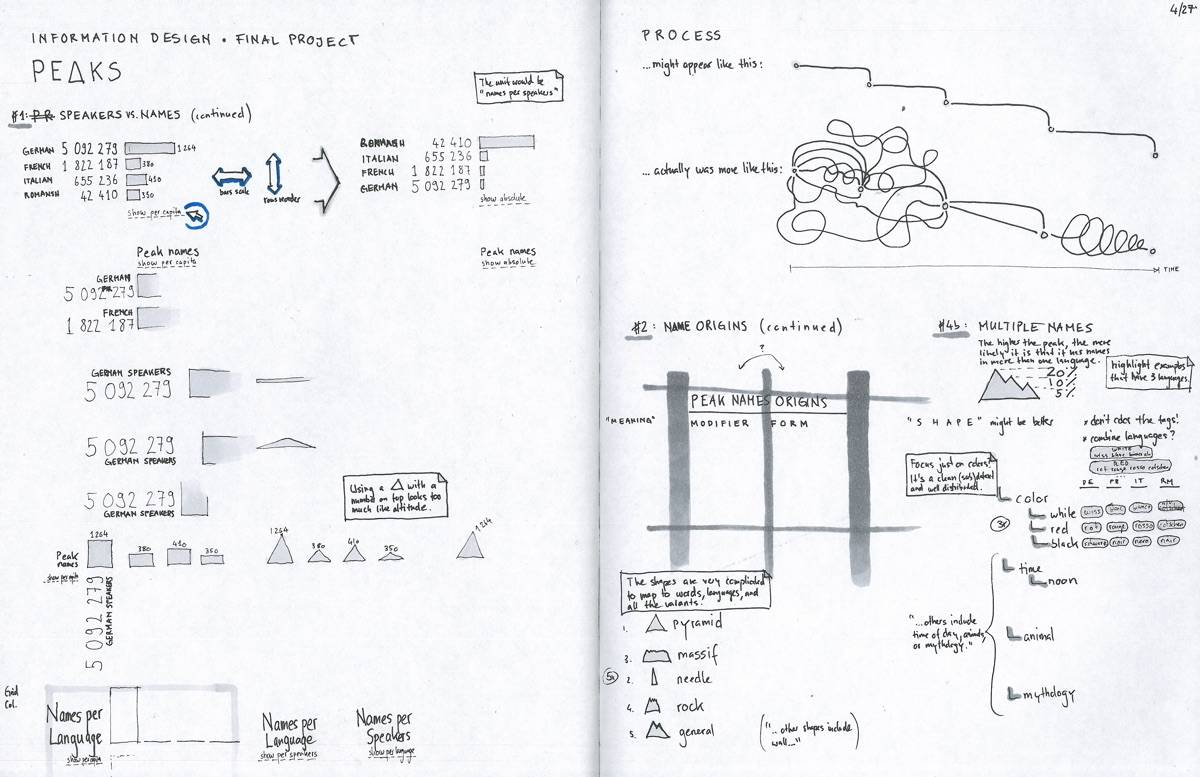 INFORMATION DESIGN • FINAL PROJECT
PEAKS
The unit would be
"names per speakers"
#1: PR SPEAKERS VS. NAMES (continued)
GERMAN 5 092 279 1264
FRENCH 1 822 187 380
ITALIAN 655 236 410
ROMANSH 42 410 350
show per capita
bars scale
rows reorder
ROMANSH 42 410
ITALIAN 655 236
FRENCH 1 822 187
GERMAN 5 092 279
show absolute
Peak names
show per capita
GERMAN
5 092 279
FRENCH
1 822 187
Peak names
show absolute
GERMAN SPEAKERS
5 092 279
5 092 279
GERMAN SPEAKERS
5 092 279
GERMAN SPEAKERS
Using a △ with a
number on top looks too
much like altitude.
Peak
names
show per capita
1264
380
410
350
1264
380
410
350
1264
5 092 279
GERMAN SPEAKERS
Grid
Col.
Names per
Language
Names per
Language
show per speakers
Names per
Speakers
show per language
4/27
PROCESS
...might appear like this:
... actually was more like this:
TIME
#2: NAME ORIGINS (continued)
?
PEAK NAMES ORIGINS
"MEANING"
MODIFIER FORM
"SHAPE" might be better
The shapes are very complicated
to map to words, languages, and
all the variants.
1. pyramid
3. massif
5x
2. needle
4. rock
5. general
("... other shapes include
wall...")
#4b: MULTIPLE NAMES
The higher the peak, the more
likely it is that it has names
in more than one language.
20%
10%
5%
highlight examples
that have 3 languages.
* don't color the tags!
* combine languages?
WHITE
RED
rot rouge rosso cotschen
DE FR IT RM
Focus just on colors!
It's a clean (sub)dataset
and well distributed.
color
3x
white weiss
red rot rouge rosso cotschen
black schwarz noir nero nair
time
noon
"...others include
time of day, animals,
or mythology."
animal
mythology